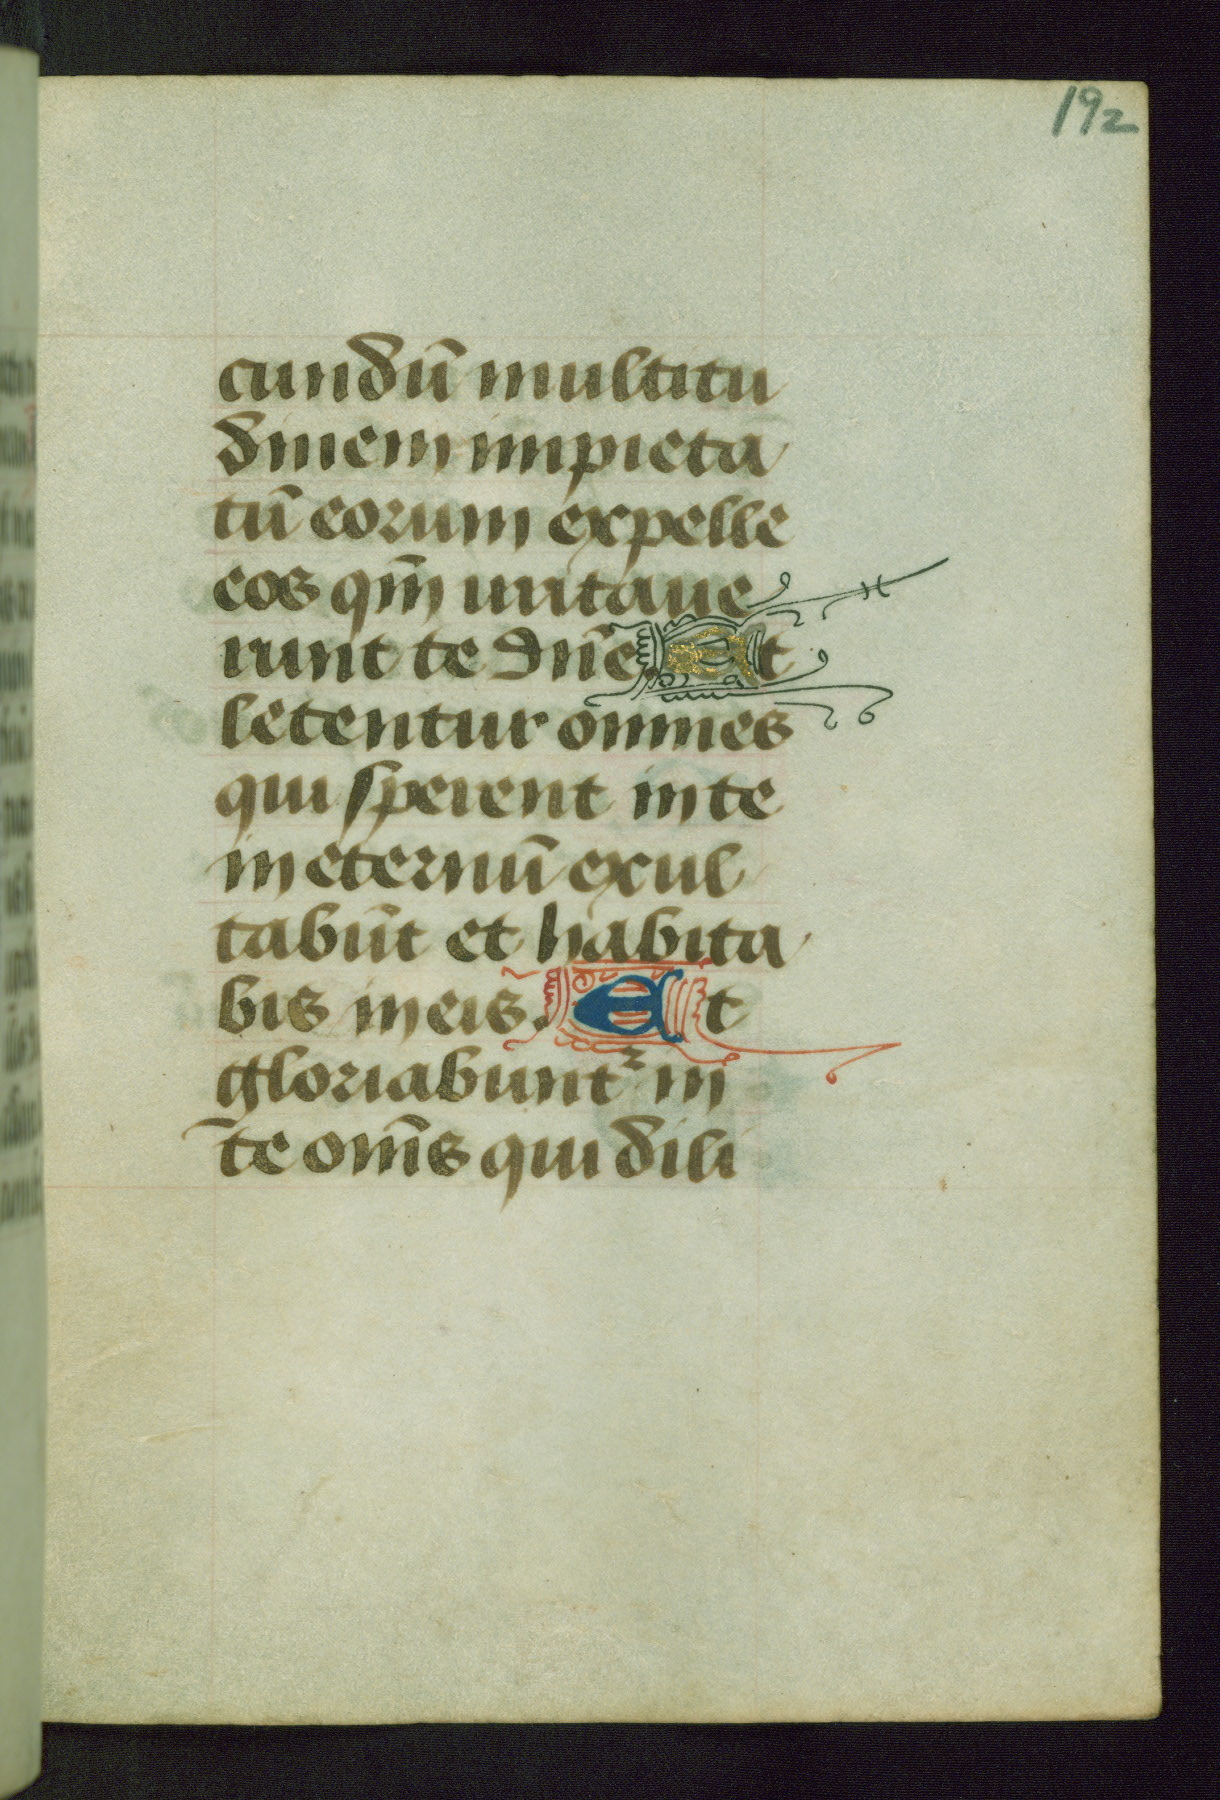 192
cundū multitu
dinem impieta
tū eorum expelle
eos qm̄ irritaue
runt te dn̄e Et
letentur omnes
qui sperent in te
in eternū exul
tabūt et habita
bis in eis. Et
gloriabuntᷣ in
te om̄s qui dili